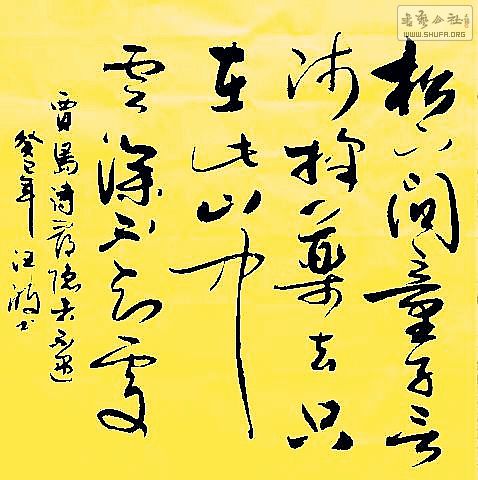 書藝公社
WWW.SHUFA.ORG
松下问童子言
师採藥去只
在此山中
云深不知处
贾岛诗寻隐者不遇
癸巳年 汪 书